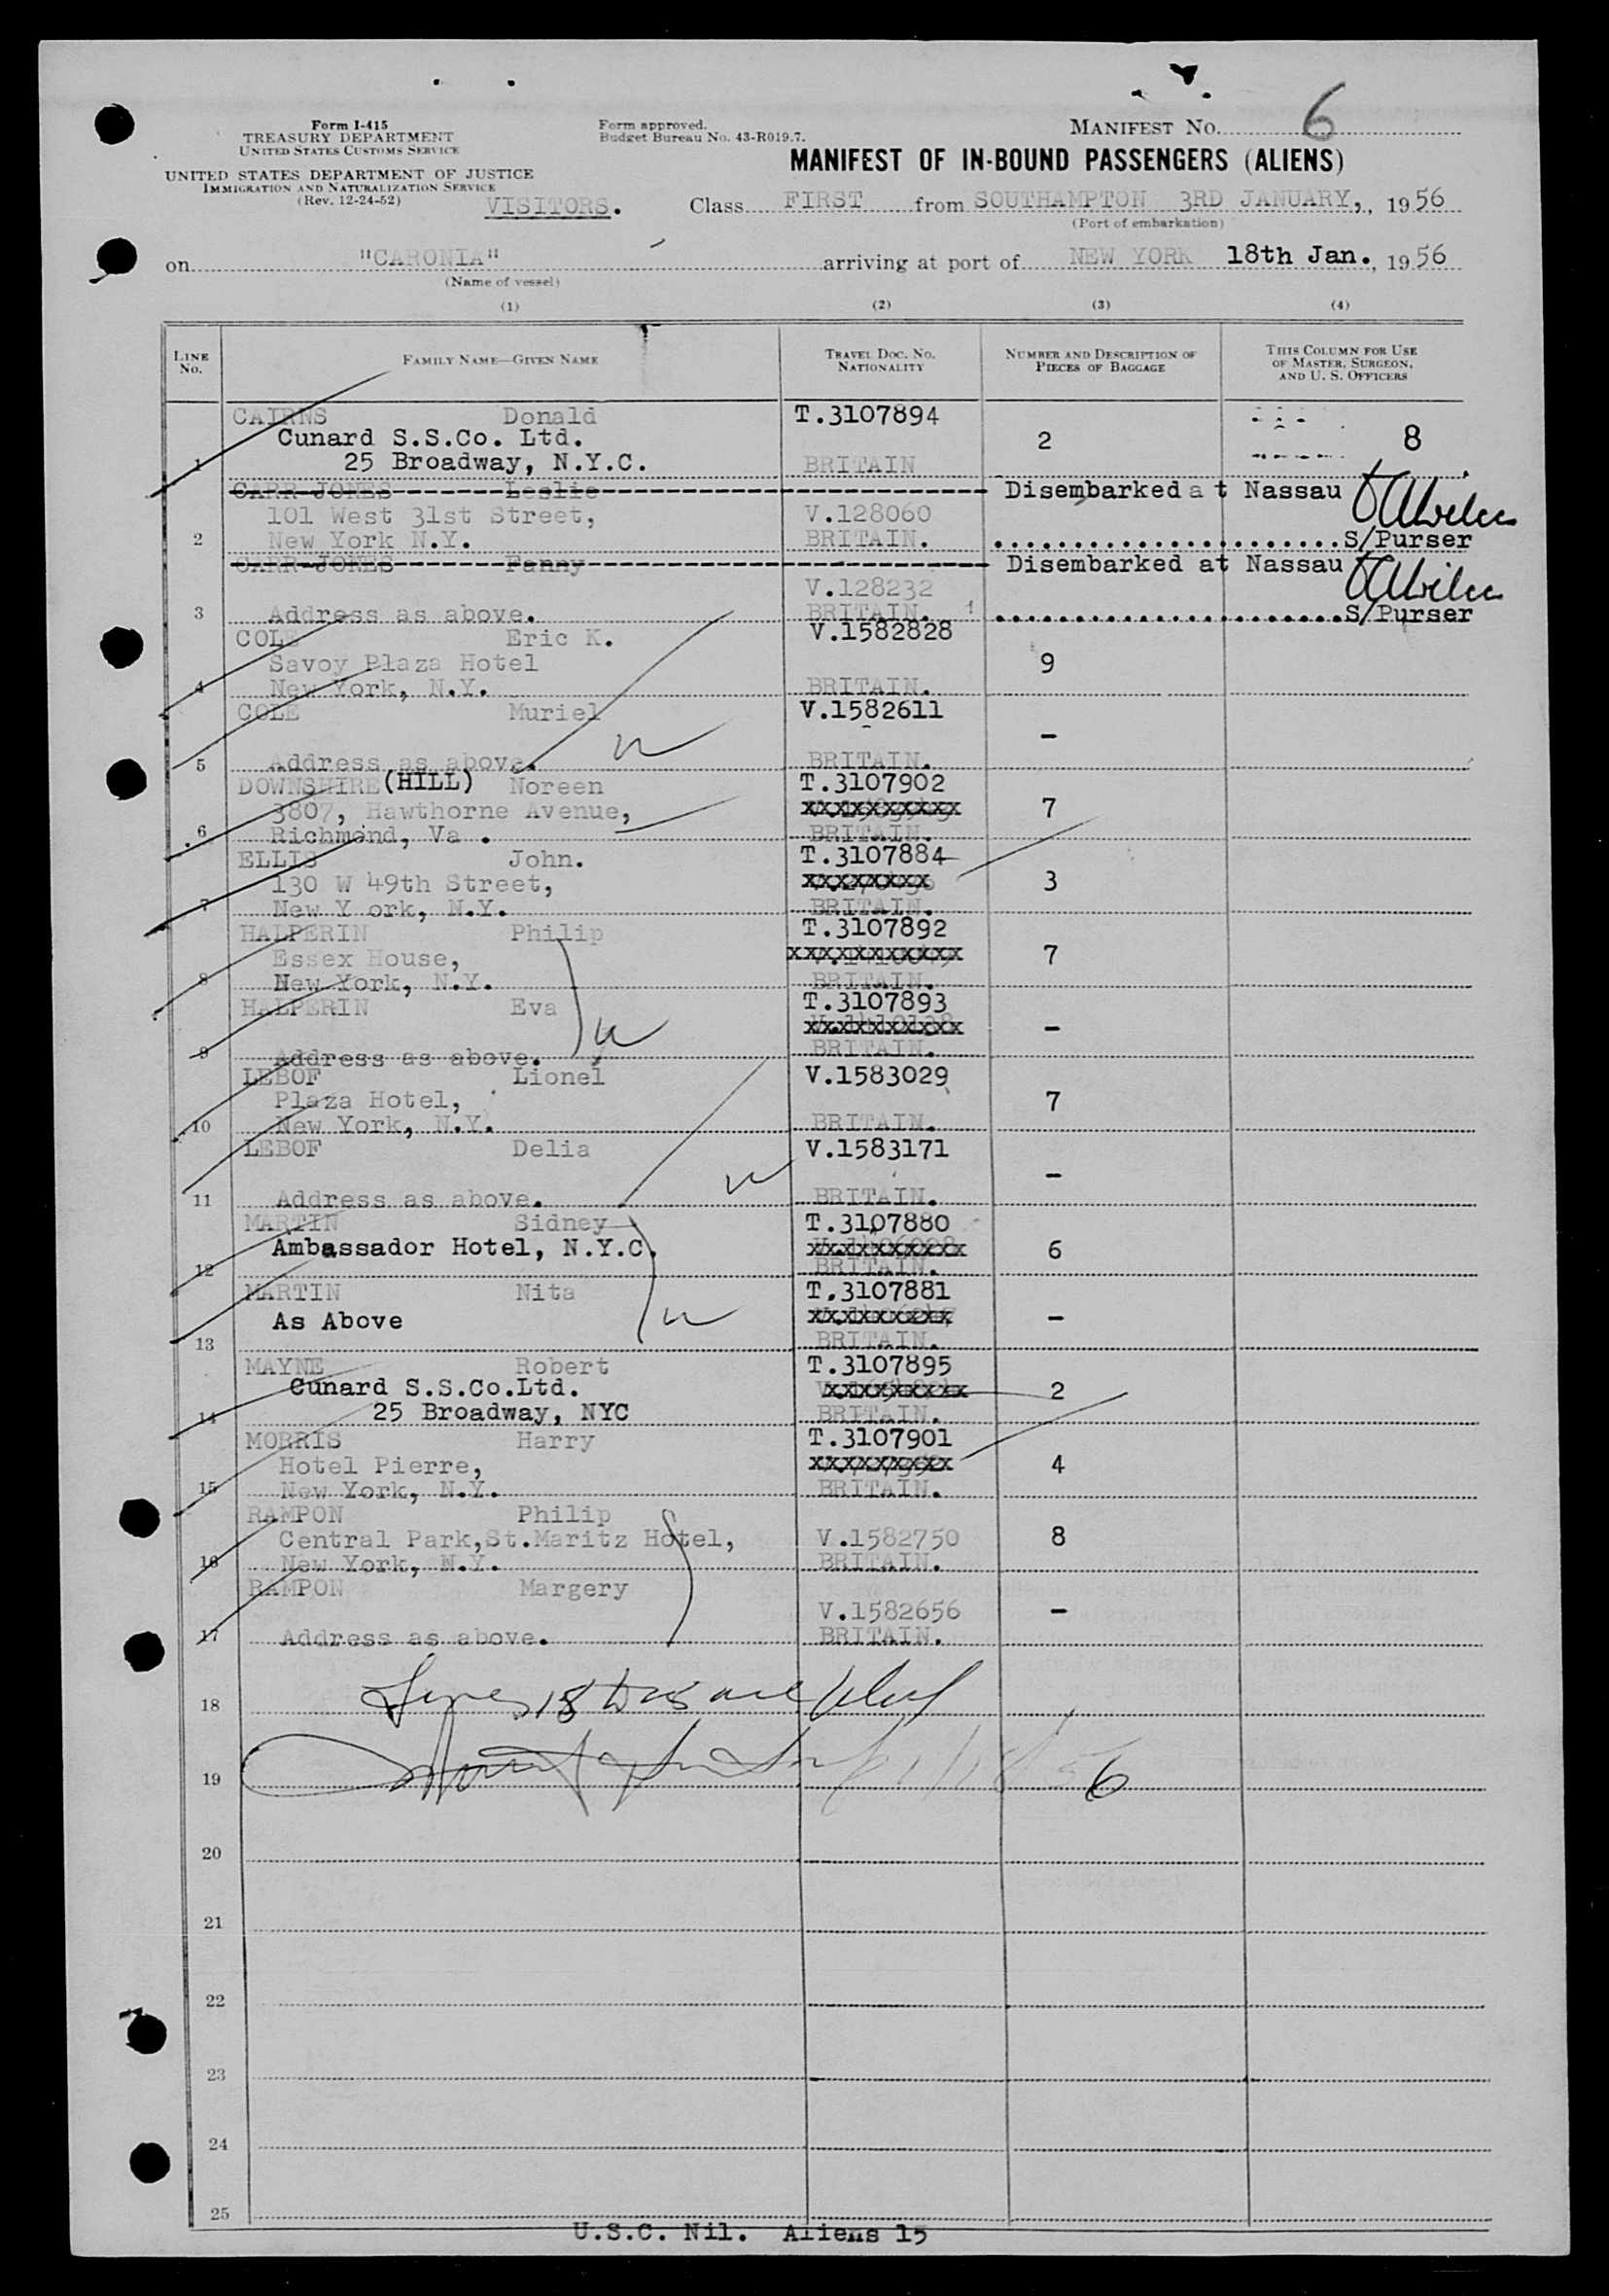 Form I-415
TREASURY DEPARTMENT
UNITED STATES CUSTOMS SERVICE
UNITED STATES DEPARTMENT OF JUSTICE
IMMIGRATION AND NATURALIZATION SERVICE
(Rev. 12-24-52)
Form approved.
Budget Bureau No. 43-R019.7.
MANIFEST No. 6
MANIFEST OF IN-BOUND PASSENGERS (ALIENS)
VISITORS. Class FIRST from SOUTHAMPTON 3RD JANUARY, , 1956
(Port of embarkation)
on "CARONIA" arriving at port of NEW YORK 18th Jan. , 1956
(Name of vessel)
(1) (2) (3) (4)
LINE No. FAMILY NAME—GIVEN NAME TRAVEL DOC. NO. NATIONALITY NUMBER AND DESCRIPTION OF PIECES OF BAGGAGE THIS COLUMN FOR USE OF MASTER, SURGEON, AND U. S. OFFICERS
CAIRNS Donald T.3107894
Cunard S.S.Co. Ltd. 2 8
1 25 Broadway, N.Y.C. BRITAIN
CARR-JONES Leslie Disembarked at Nassau
101 West 31st Street, V.128060
2 New York N.Y. BRITAIN. S/Purser
CARR-JONES Fanny Disembarked at Nassau
V.128232
3 Address as above. BRITAIN. S/Purser
COLE Eric K. V.1582828
Savoy Plaza Hotel 9
4 New York, N.Y. BRITAIN.
COLE Muriel V.1582611
-
5 Address as above. BRITAIN.
DOWNSHIRE (HILL) Noreen T.3107902
3807, Hawthorne Avenue, xxxxxxxxxx 7
6 Richmond, Va . BRITAIN.
ELLIS John. T.3107884
130 W 49th Street, xxxxxxxx 3
7 New Y ork, N.Y. BRITAIN.
HALPERIN Philip T.3107892
Essex House, xxxxxxxxxxx 7
8 New York, N.Y. BRITAIN.
HALPERIN Eva T.3107893
xxxxxxxxxx -
9 Address as above. BRITAIN.
LEBOF Lionel V.1583029
Plaza Hotel, 7
10 New York, N.Y. BRITAIN.
LEBOF Delia V.1583171
-
11 Address as above. BRITAIN.
MARTIN Sidney T.3107880
Ambassador Hotel, N.Y.C. xxxxxxxxxx 6
12 BRITAIN.
MARTIN Nita T.3107881
As Above xxxxxxxxx -
13 BRITAIN.
MAYNE Robert T.3107895
Cunard S.S.Co.Ltd. xxxxxxxxx 2
14 25 Broadway, NYC BRITAIN.
MORRIS Harry T.3107901
Hotel Pierre, xxxxxxxxx 4
15 New York, N.Y. BRITAIN.
RAMPON Philip
Central Park,St.Maritz Hotel, V.1582750 8
16 New York, N.Y. BRITAIN.
RAMPON Margery
V.1582656 -
17 Address as above. BRITAIN.
18 Lines 18 to 25 are
19
20
21
22
23
24
25
U.S.C. Nil. Aliens 15